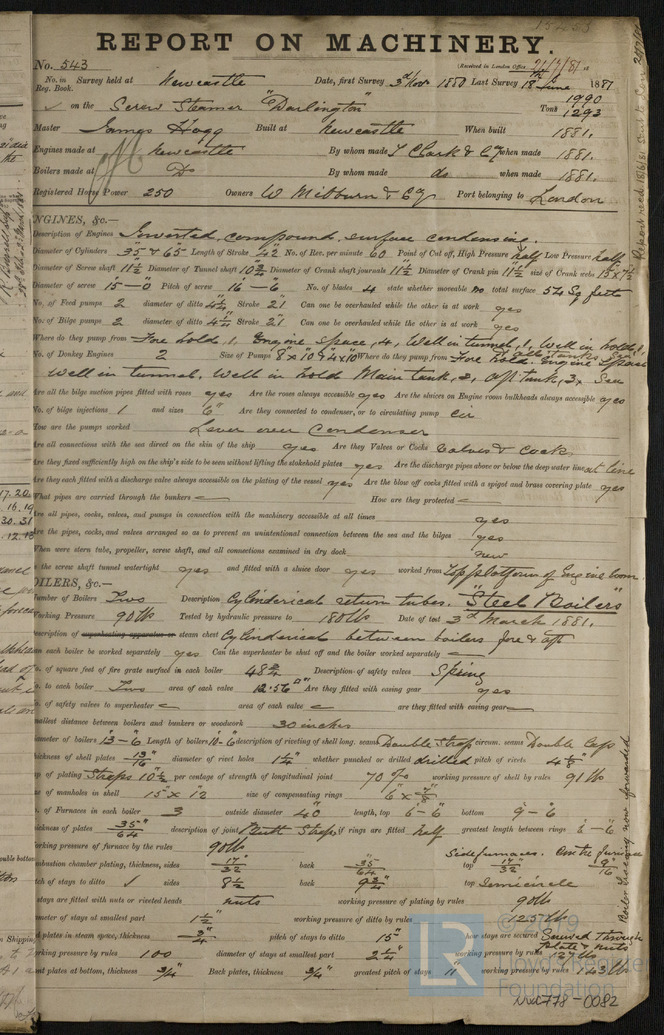 15453
REPORT ON MACHINERY.
No. 543 (Received in London Office 21/7/81
No. in Survey held at Newcastle Date, first Survey 3rd Nov 1880 Last Survey 18th June 1881
Reg. Book.
on the Screw Steamer "Darlington" Tons 1990 1293
Master James Hogg Built at Newcastle When built 1881.
Engines made at Newcastle By whom made when made 1881.
Boilers made at Do By whom made do when made 1881.
Registered Horse Power 250 Owners W Milburn & Co Port belonging to London
ENGINES, &c.—
Description of Engines Inverted, compound, surface condensing.
Diameter of Cylinders 35" & 65" Length of Stroke 42" No. of Rev. per minute 60 Point of Cut off, High Pressure half Low Pressure half
Diameter of Screw shaft 11½ Diameter of Tunnel shaft 10¾ Diameter of Crank shaft journals 11½ Diameter of Crank pin 11½ size of Crank webs 15 x 7½
Diameter of screw 15-0 Pitch of screw 16-6 No. of blades 4 state whether moveable no total surface 54 Sq feet
No. of Feed pumps 2 diameter of ditto 4¼ Stroke 21" Can one be overhauled while the other is at work yes
No. of Bilge pumps 2 diameter of ditto 4¼ Stroke 21" Can one be overhauled while the other is at work yes
Where do they pump from Fore hold, 1, Engine space, 4, Well in tunnel, 1, Well in hold, 1,
No. of Donkey Engines 2 Size of Pumps 8" x 10" & 4 x 10 Where do they pump from Fore hold Engine Space
Well in tunnel, Well in hold Main tank, 2, Aft tank, 3, Sea
Are all the bilge suction pipes fitted with roses yes Are the roses always accessible yes Are the sluices on Engine room bulkheads always accessible yes
No. of bilge injections 1 and sizes 6" Are they connected to condenser, or to circulating pump cir
How are the pumps worked Lever over Condenser
Are all connections with the sea direct on the skin of the ship yes Are they Valves or Cocks Valves & Cocks
Are they fixed sufficiently high on the ship's side to be seen without lifting the stokehold plates yes Are the discharge pipes above or below the deep water line at line
Are they each fitted with a discharge valve always accessible on the plating of the vessel yes Are the blow off cocks fitted with a spigot and brass covering plate yes
What pipes are carried through the bunkers — How are they protected —
Are all pipes, cocks, valves, and pumps in connection with the machinery accessible at all times yes
Are the pipes, cocks, and valves arranged so as to prevent an unintentional connection between the sea and the bilges yes
When were stern tube, propeller, screw shaft, and all connections examined in dry dock new
Is the screw shaft tunnel watertight yes and fitted with a sluice door yes worked from Top platform of Engine room.
BOILERS, &c.—
Number of Boilers Two Description Cylinderical return tubes. "Steel Boilers"
Working Pressure 90 lbs Tested by hydraulic pressure to 180 lbs Date of test 3rd March 1881.
Description of superheating apparatus or steam chest Cylinderical between boilers fore & aft
Can each boiler be worked separately yes Can the superheater be shut off and the boiler worked separately —
No. of square feet of fire grate surface in each boiler 48¾ Description of safety valves Spring
No. to each boiler Two area of each valve 12.56 □" Are they fitted with easing gear yes
No. of safety valves to superheater — area of each valve — are they fitted with easing gear —
Smallest distance between boilers and bunkers or woodwork 30 inches
Diameter of boilers 13-6 Length of boilers 10-6 description of riveting of shell long. seams Double Strap circum. seams Double Lap
Thickness of shell plates 13/16" diameter of rivet holes 1¼" whether punched or drilled drilled pitch of rivets 4⅝"
Lap of plating Straps 10½ per centage of strength of longitudinal joint 70 % working pressure of shell by rules 91 lb
Size of manholes in shell 15" x 12 size of compensating rings
No. of Furnaces in each boiler 3 outside diameter 40" length, top 6-6" bottom 9-6
Thickness of plates 35/64" description of joint Butt Strap if rings are fitted half greatest length between rings 6-6
Working pressure of furnace by the rules 90 lb Side furnaces. Centre furnace
Combustion chamber plating, thickness, sides 17/32 back 35/64 top 17/32 9/16
Pitch of stays to ditto sides 8½ back 9¾ top Semicircle
If stays are fitted with nuts or riveted heads nuts working pressure of plating by rules 90 lb
Diameter of stays at smallest part 1½" working pressure of ditto by rules 125 lb
End plates in steam space, thickness ¾" pitch of stays to ditto 15" how stays are secured Secured through plate & nuts
Working pressure by rules 100 diameter of stays at smallest part 2¼" working pressure by rules 127 lb
Front plates at bottom, thickness ¾" Back plates, thickness ¾" greatest pitch of stays 11" working pressure by rules 143 lb
© 2019
Lloyd's Register
Foundation
LR
778-0082